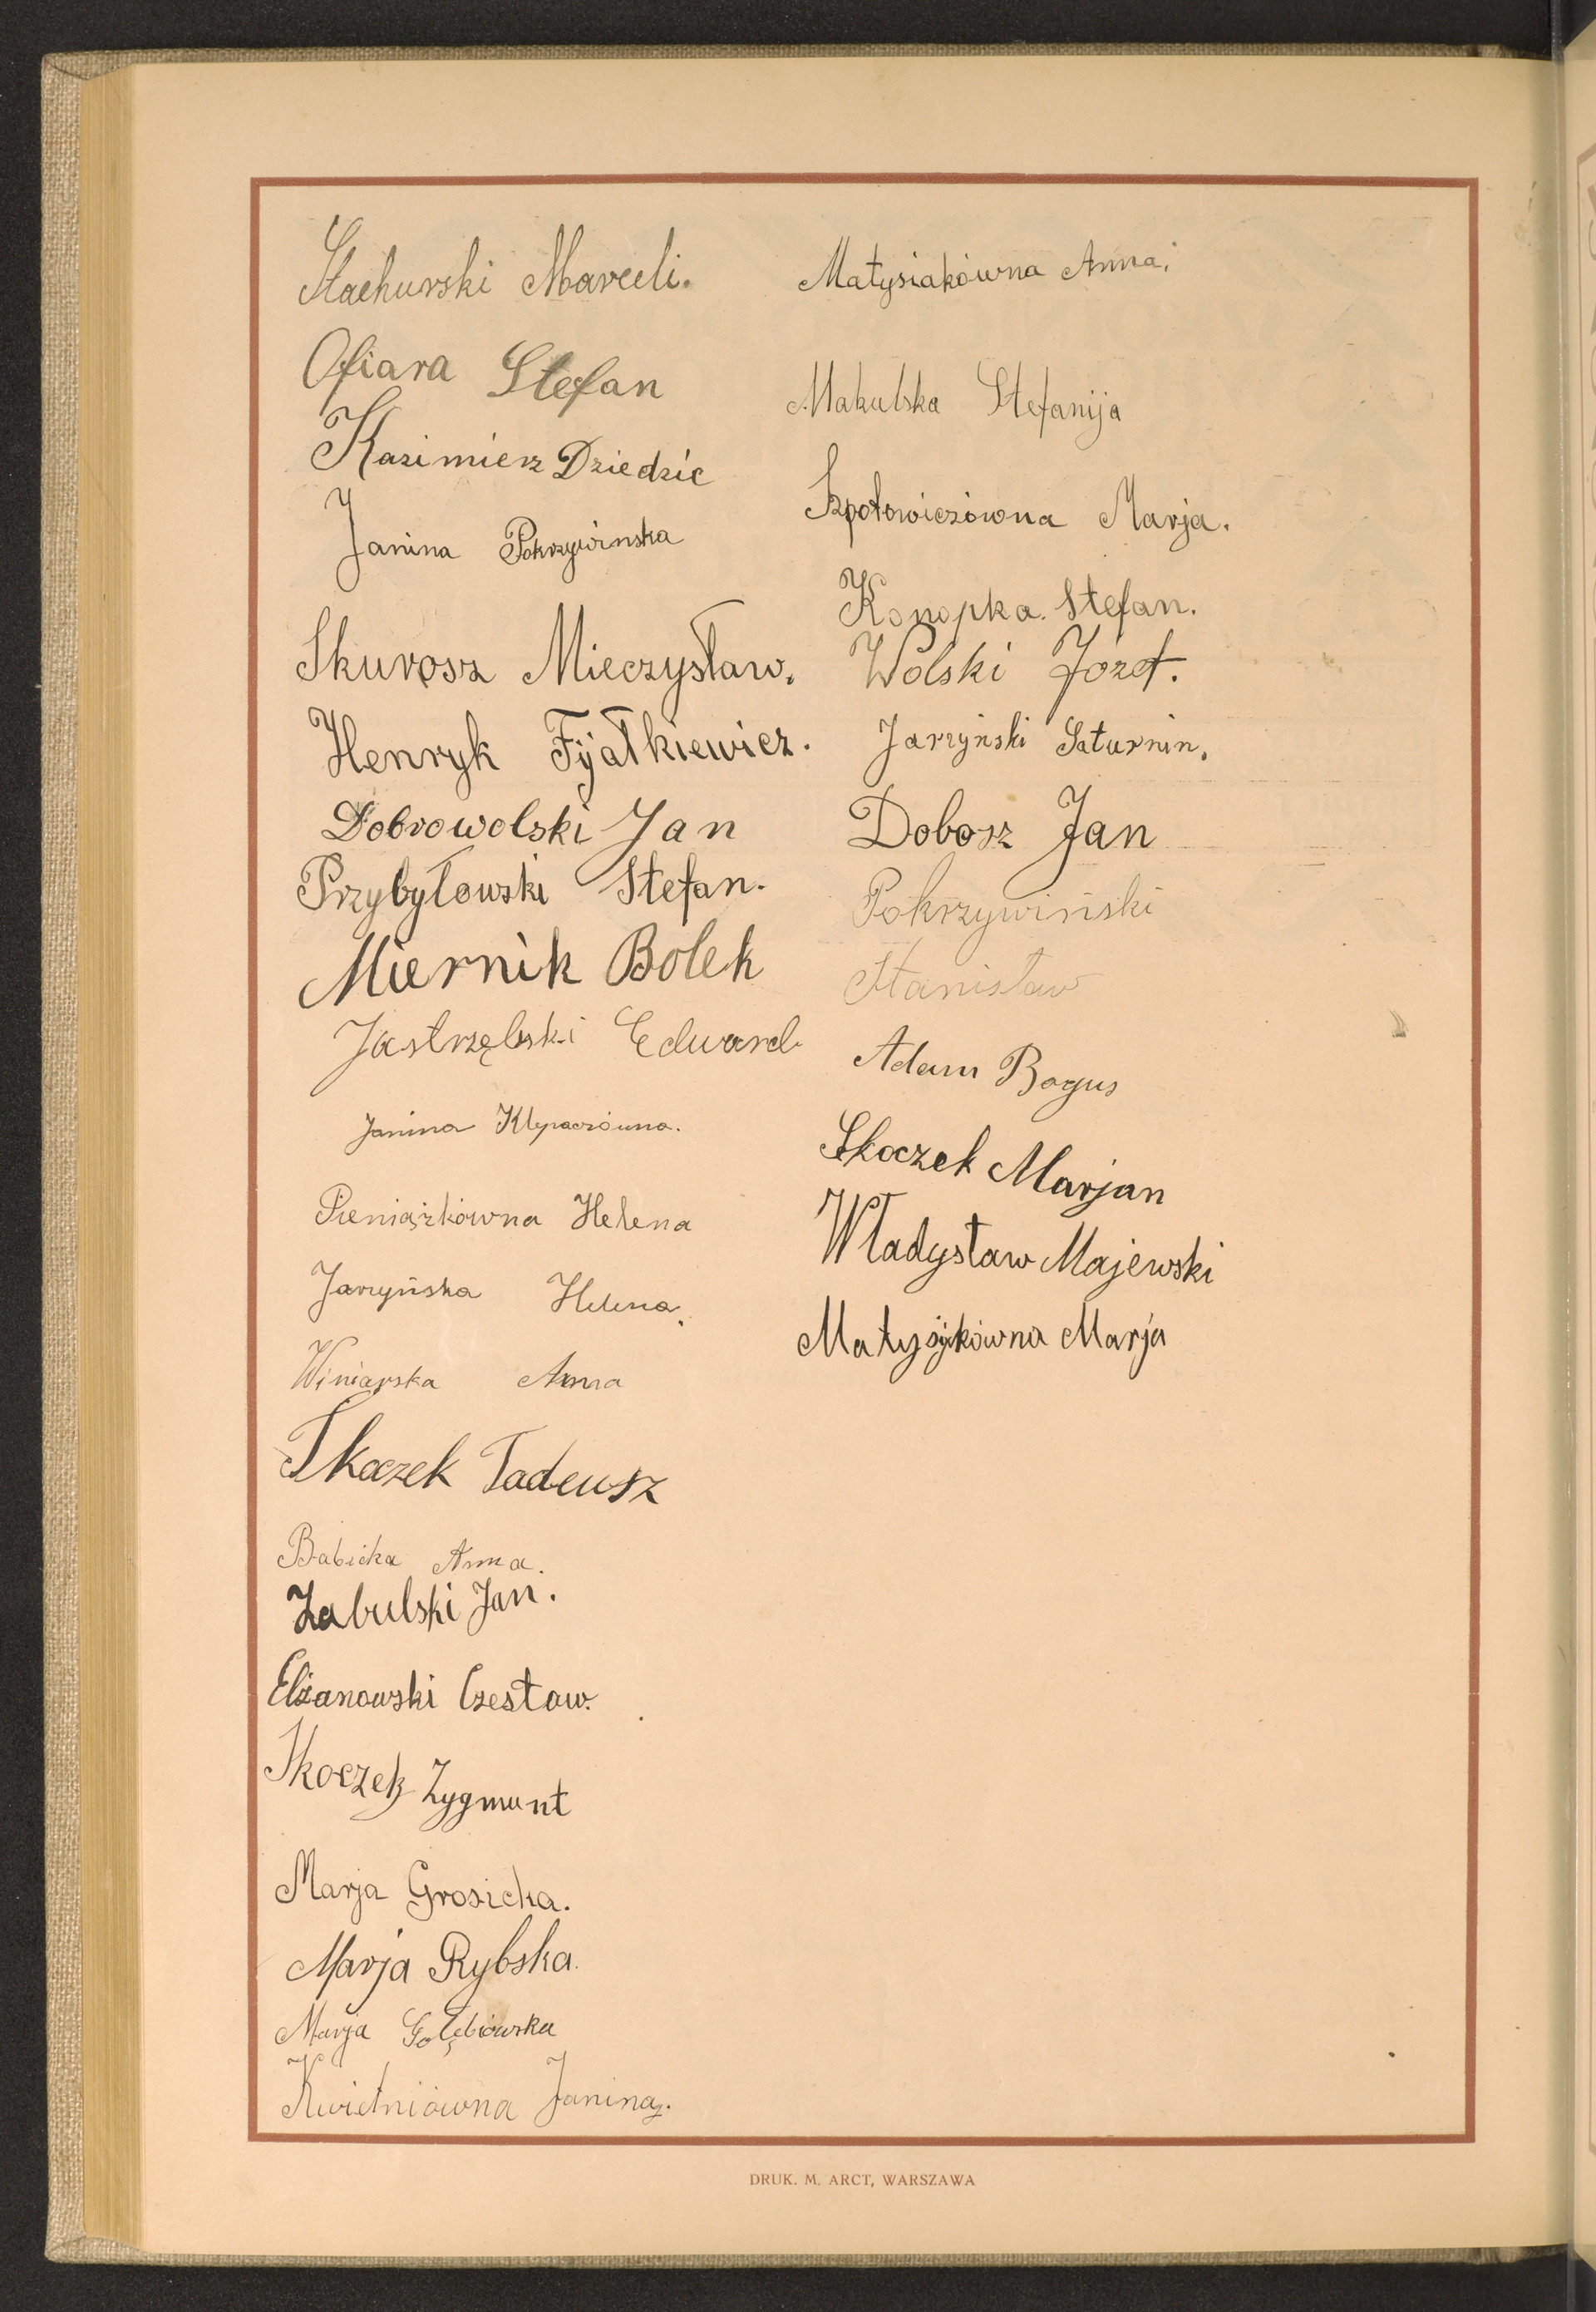 Stachurski Marceli.
Ofiara Stefan
Kazimierz Dziedzic
Janina Pokrzywinska
Skurosz Mieczysław.
Henryk Fijałkiewicz.
Dobrowolski Jan
Przybyłowski Stefan.
Miernik Bolek
Jastrzębski Edward
Janina Klepaczówna.
Pieniążkówna Helena
Jarzyńska Helena.
Winiarska Anna
Skoczek Tadeusz
Babicka Anna.
Zabulski Jan.
Elżanowski Czesław.
Skoczek Zygmunt
Marja Grosicka.
Marja Rybska.
Marja Gołębiowska
Kwietniówna Janina.
Matysiakówna Anna.
Makulska Stefanija
Szpotowiczówna Marja.
Konopka Stefan.
Wolski Józef.
Jarzyński Saturnin.
Dobosz Jan
Pokrzywiński
Stanisław
Adam Bogus
Skoczek Marjan
Władysław Majewski
Marja
DRUK. M. ARCT, WARSZAWA